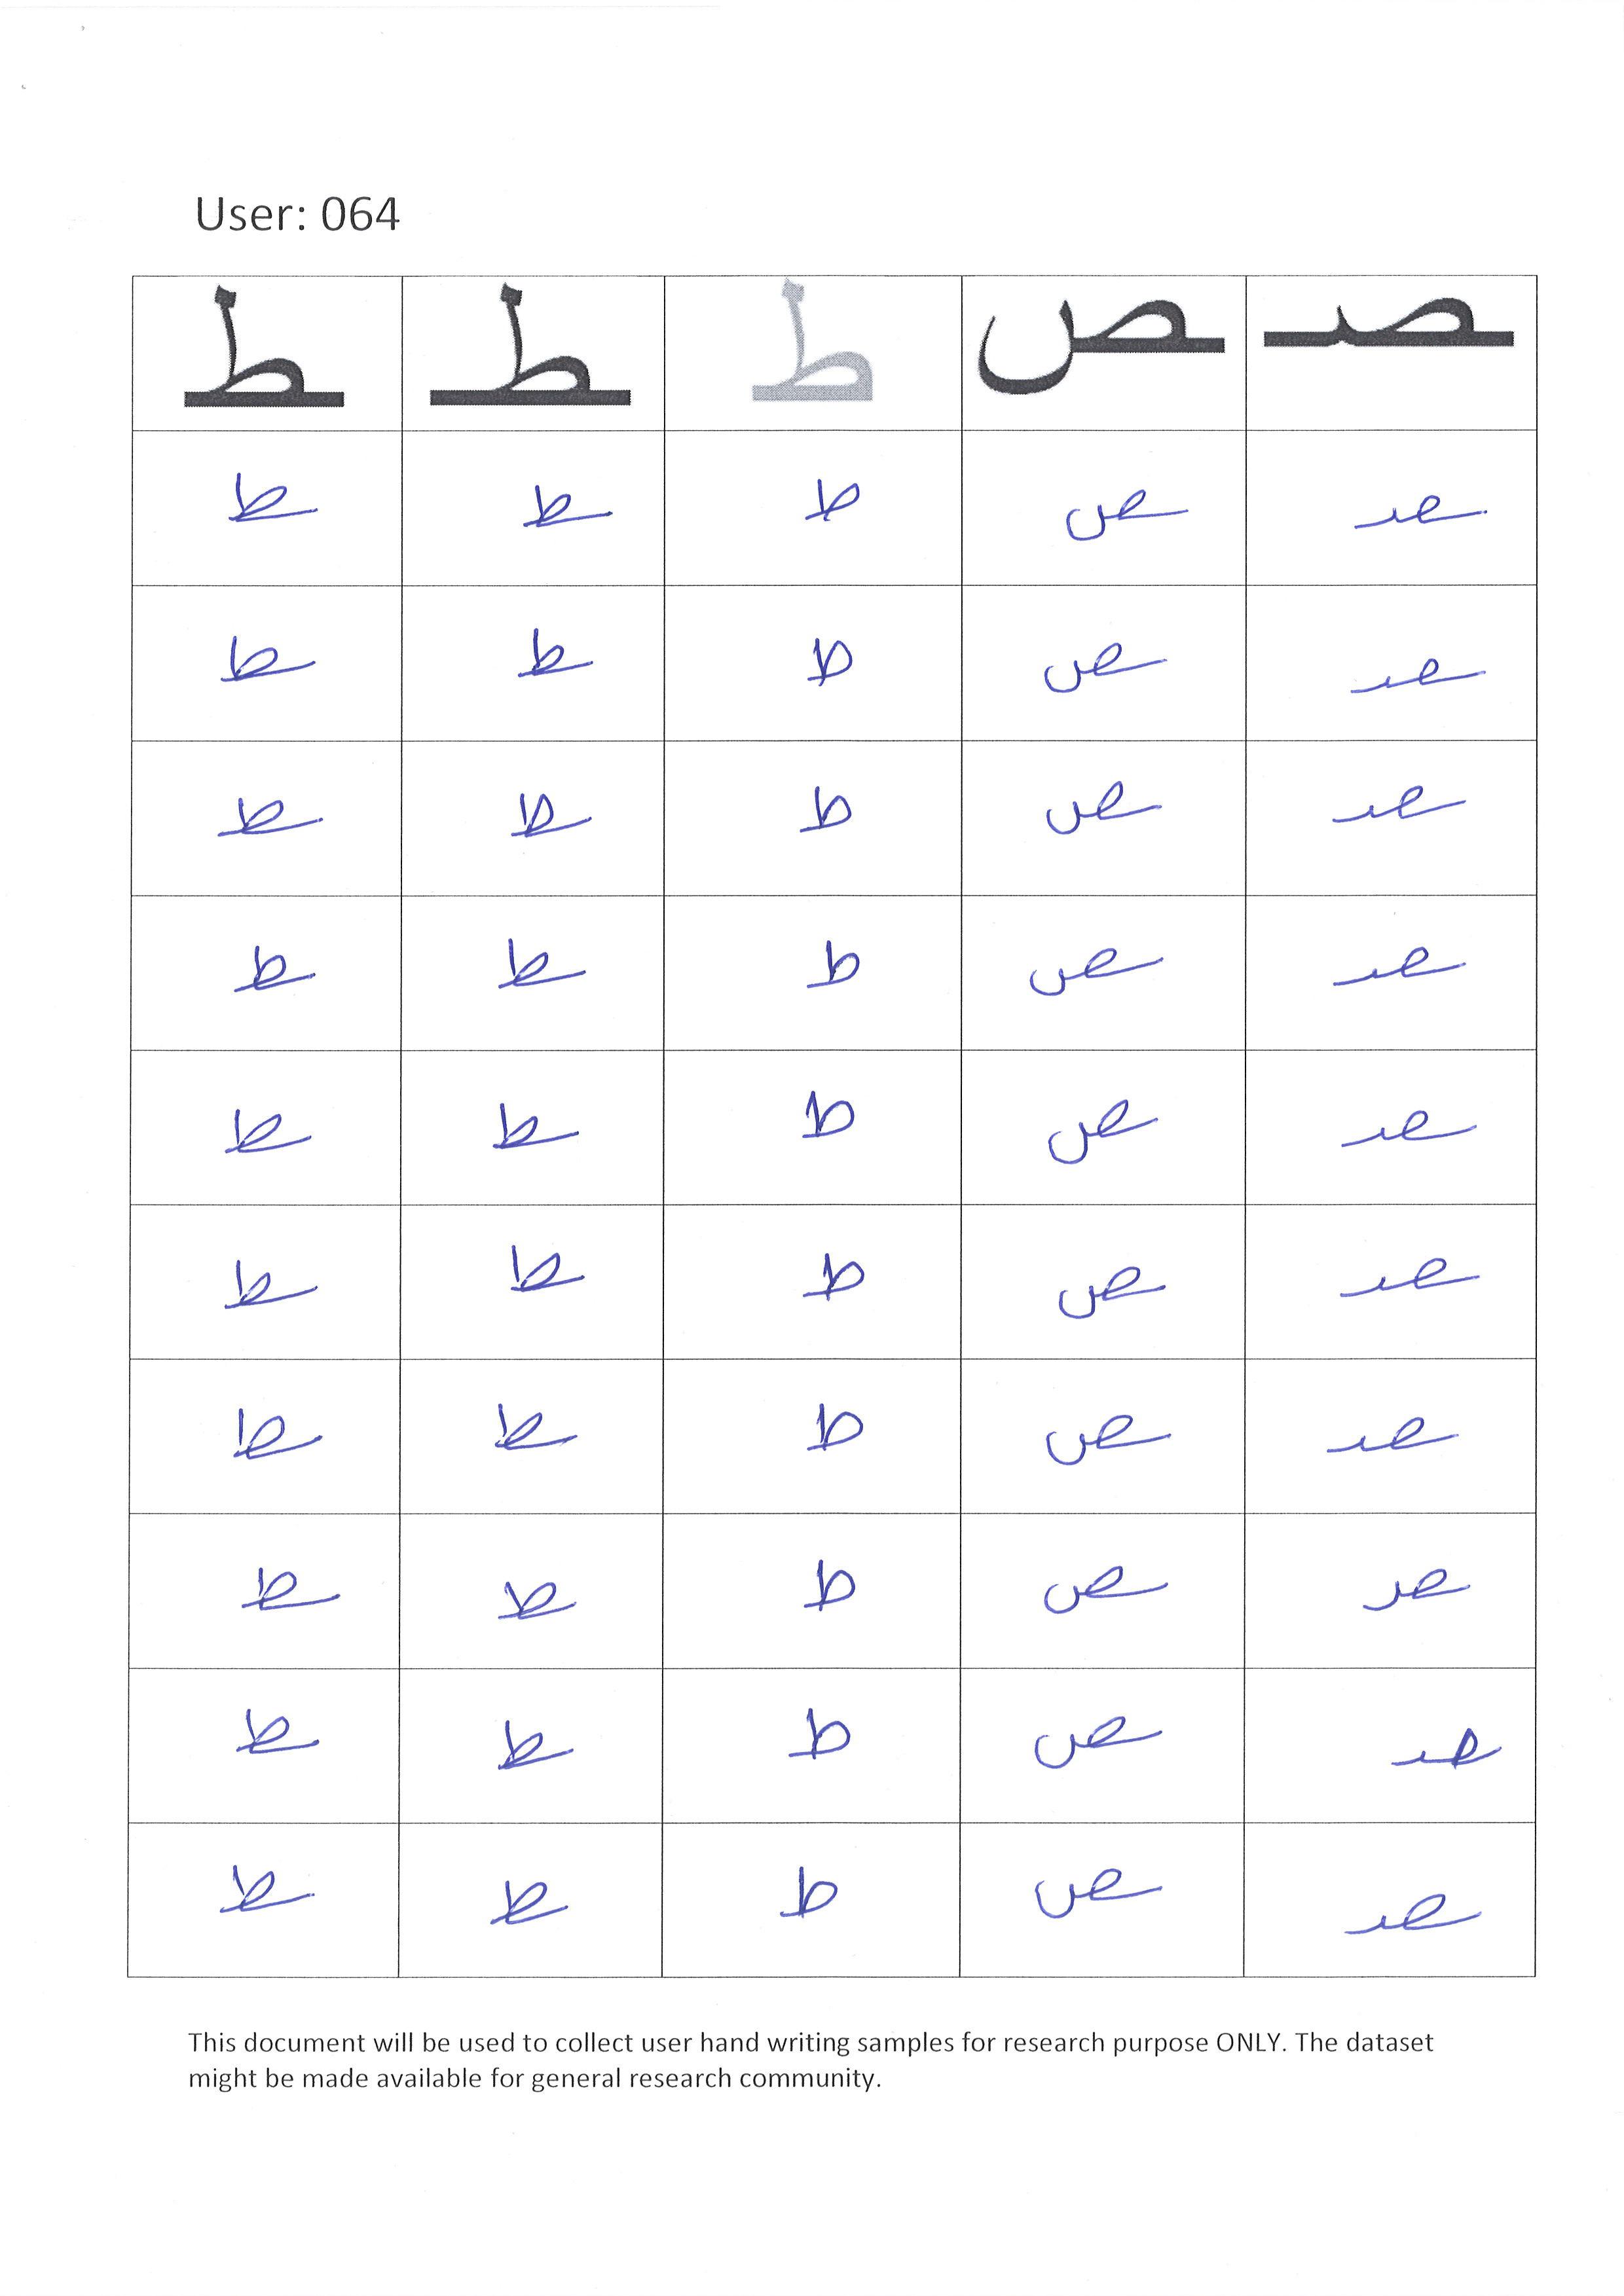 User: 064
ـط ـطـ ط ـص ـصـ
ـط ـطـ ط ـص ـصـ
ـط ـطـ ط ـص ـصـ
ـط ـطـ ط ـص ـصـ
ـط ـطـ ط ـص ـصـ
ـط ـطـ ط ـص ـصـ
ـط ـطـ ط ـص ـصـ
ـط ـطـ ط ـص ـصـ
ـط ـطـ ط ـص ـصـ
ـط ـطـ ط ـص ـصـ
ـط ـطـ ط ـص ـصـ
This document will be used to collect user hand writing samples for research purpose ONLY. The dataset
might be made available for general research community.